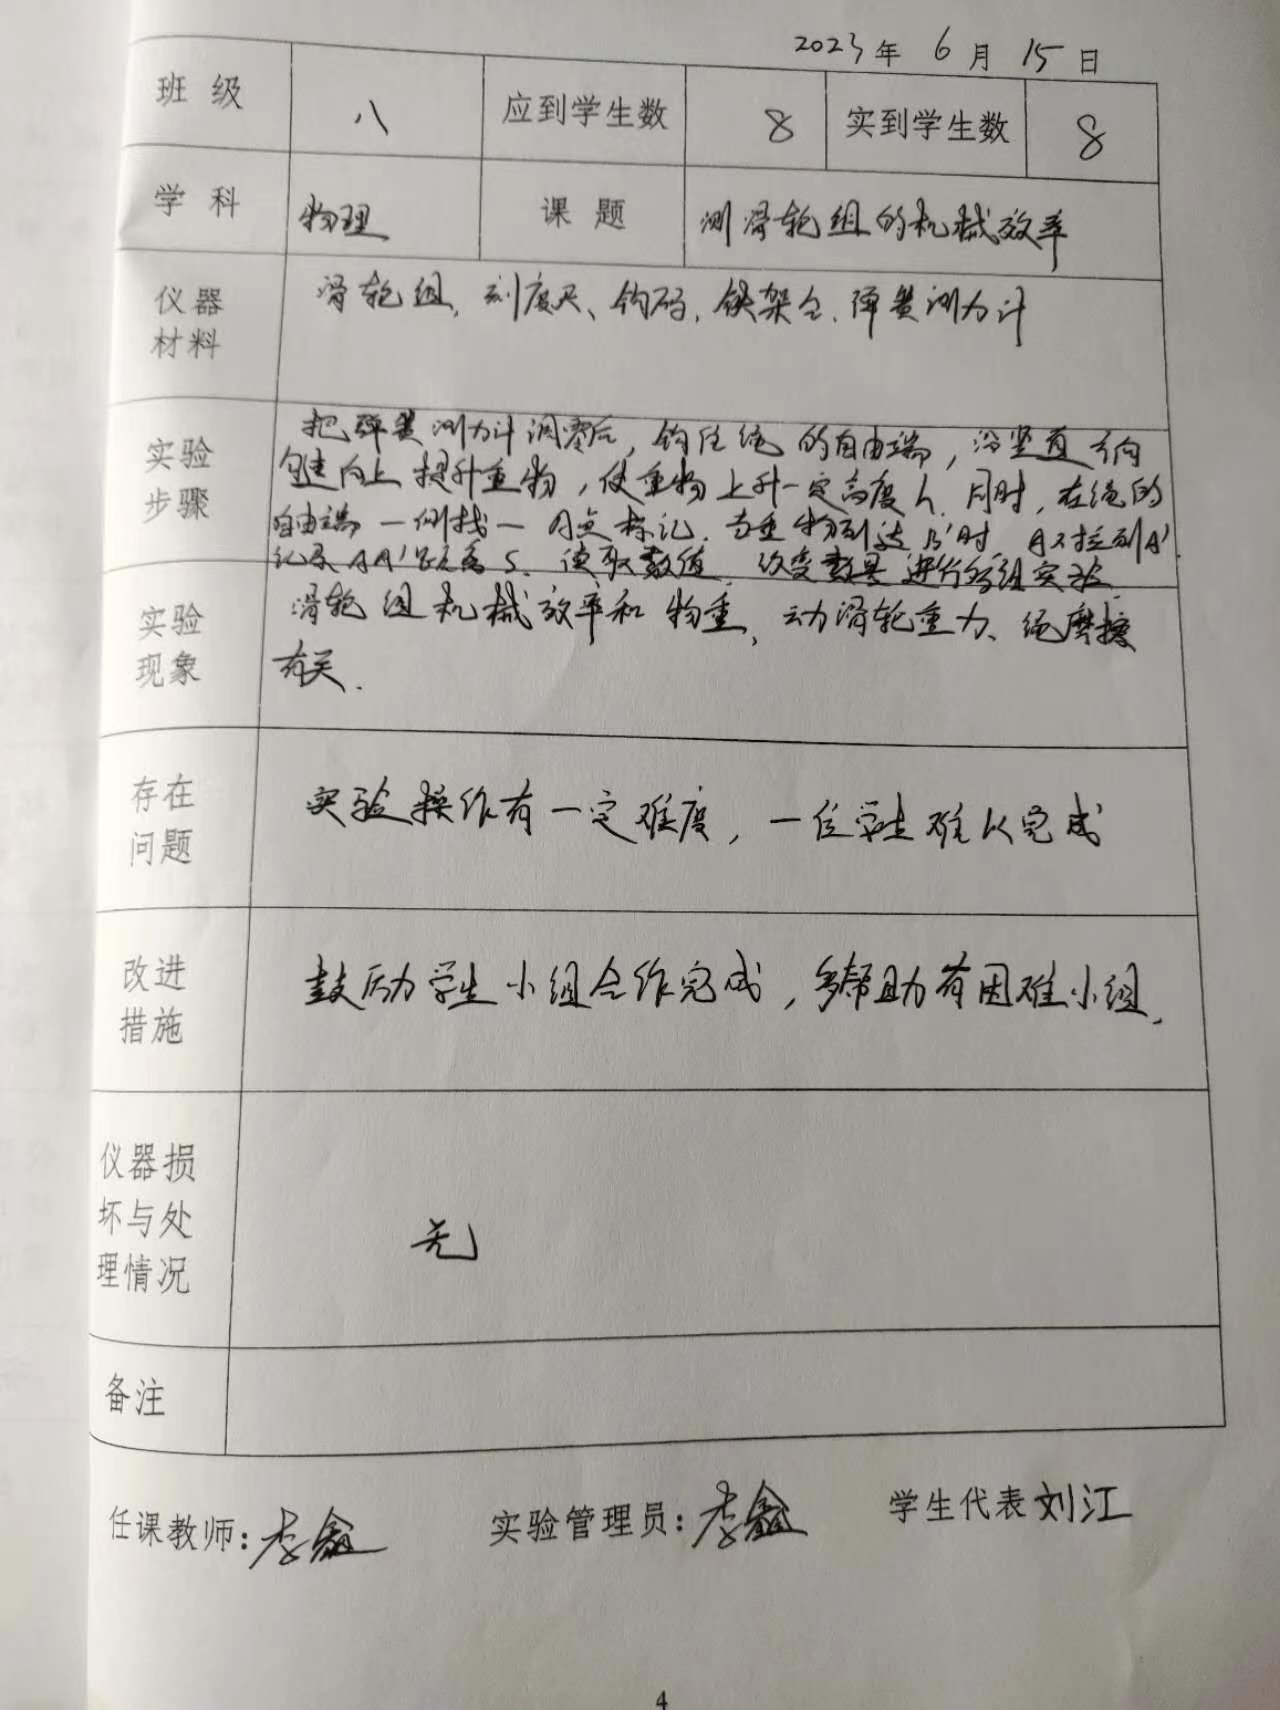 2023年 6月 15日
班级 八 应到学生数 8 实到学生数 8
学科 物理 课题 测滑轮组的机械效率
仪器
材料
滑轮组、刻度尺、钩码、铁架台、弹簧测力计
实验
步骤
把弹簧测力计调零后，钩住绳的自由端，沿竖直方向
向上提升重物，使重物上升一定高度h. 同时，在绳的
自由端一侧找一 A点标记. 当重物到达B'时, A对应到A'.
记录AA'距离S. 读取数值. 改变数具进行多组实验.
实验
现象
滑轮组机械效率和物重、动滑轮重力、绳摩擦
有关.
存在
问题
实验操作有一定难度，一位学生难以完成
改进
措施
鼓励学生小组合作完成，多帮助有困难小组.
仪器损
坏与处
理情况
无
备注
任课教师：李鑫 实验管理员：李鑫 学生代表刘江
4